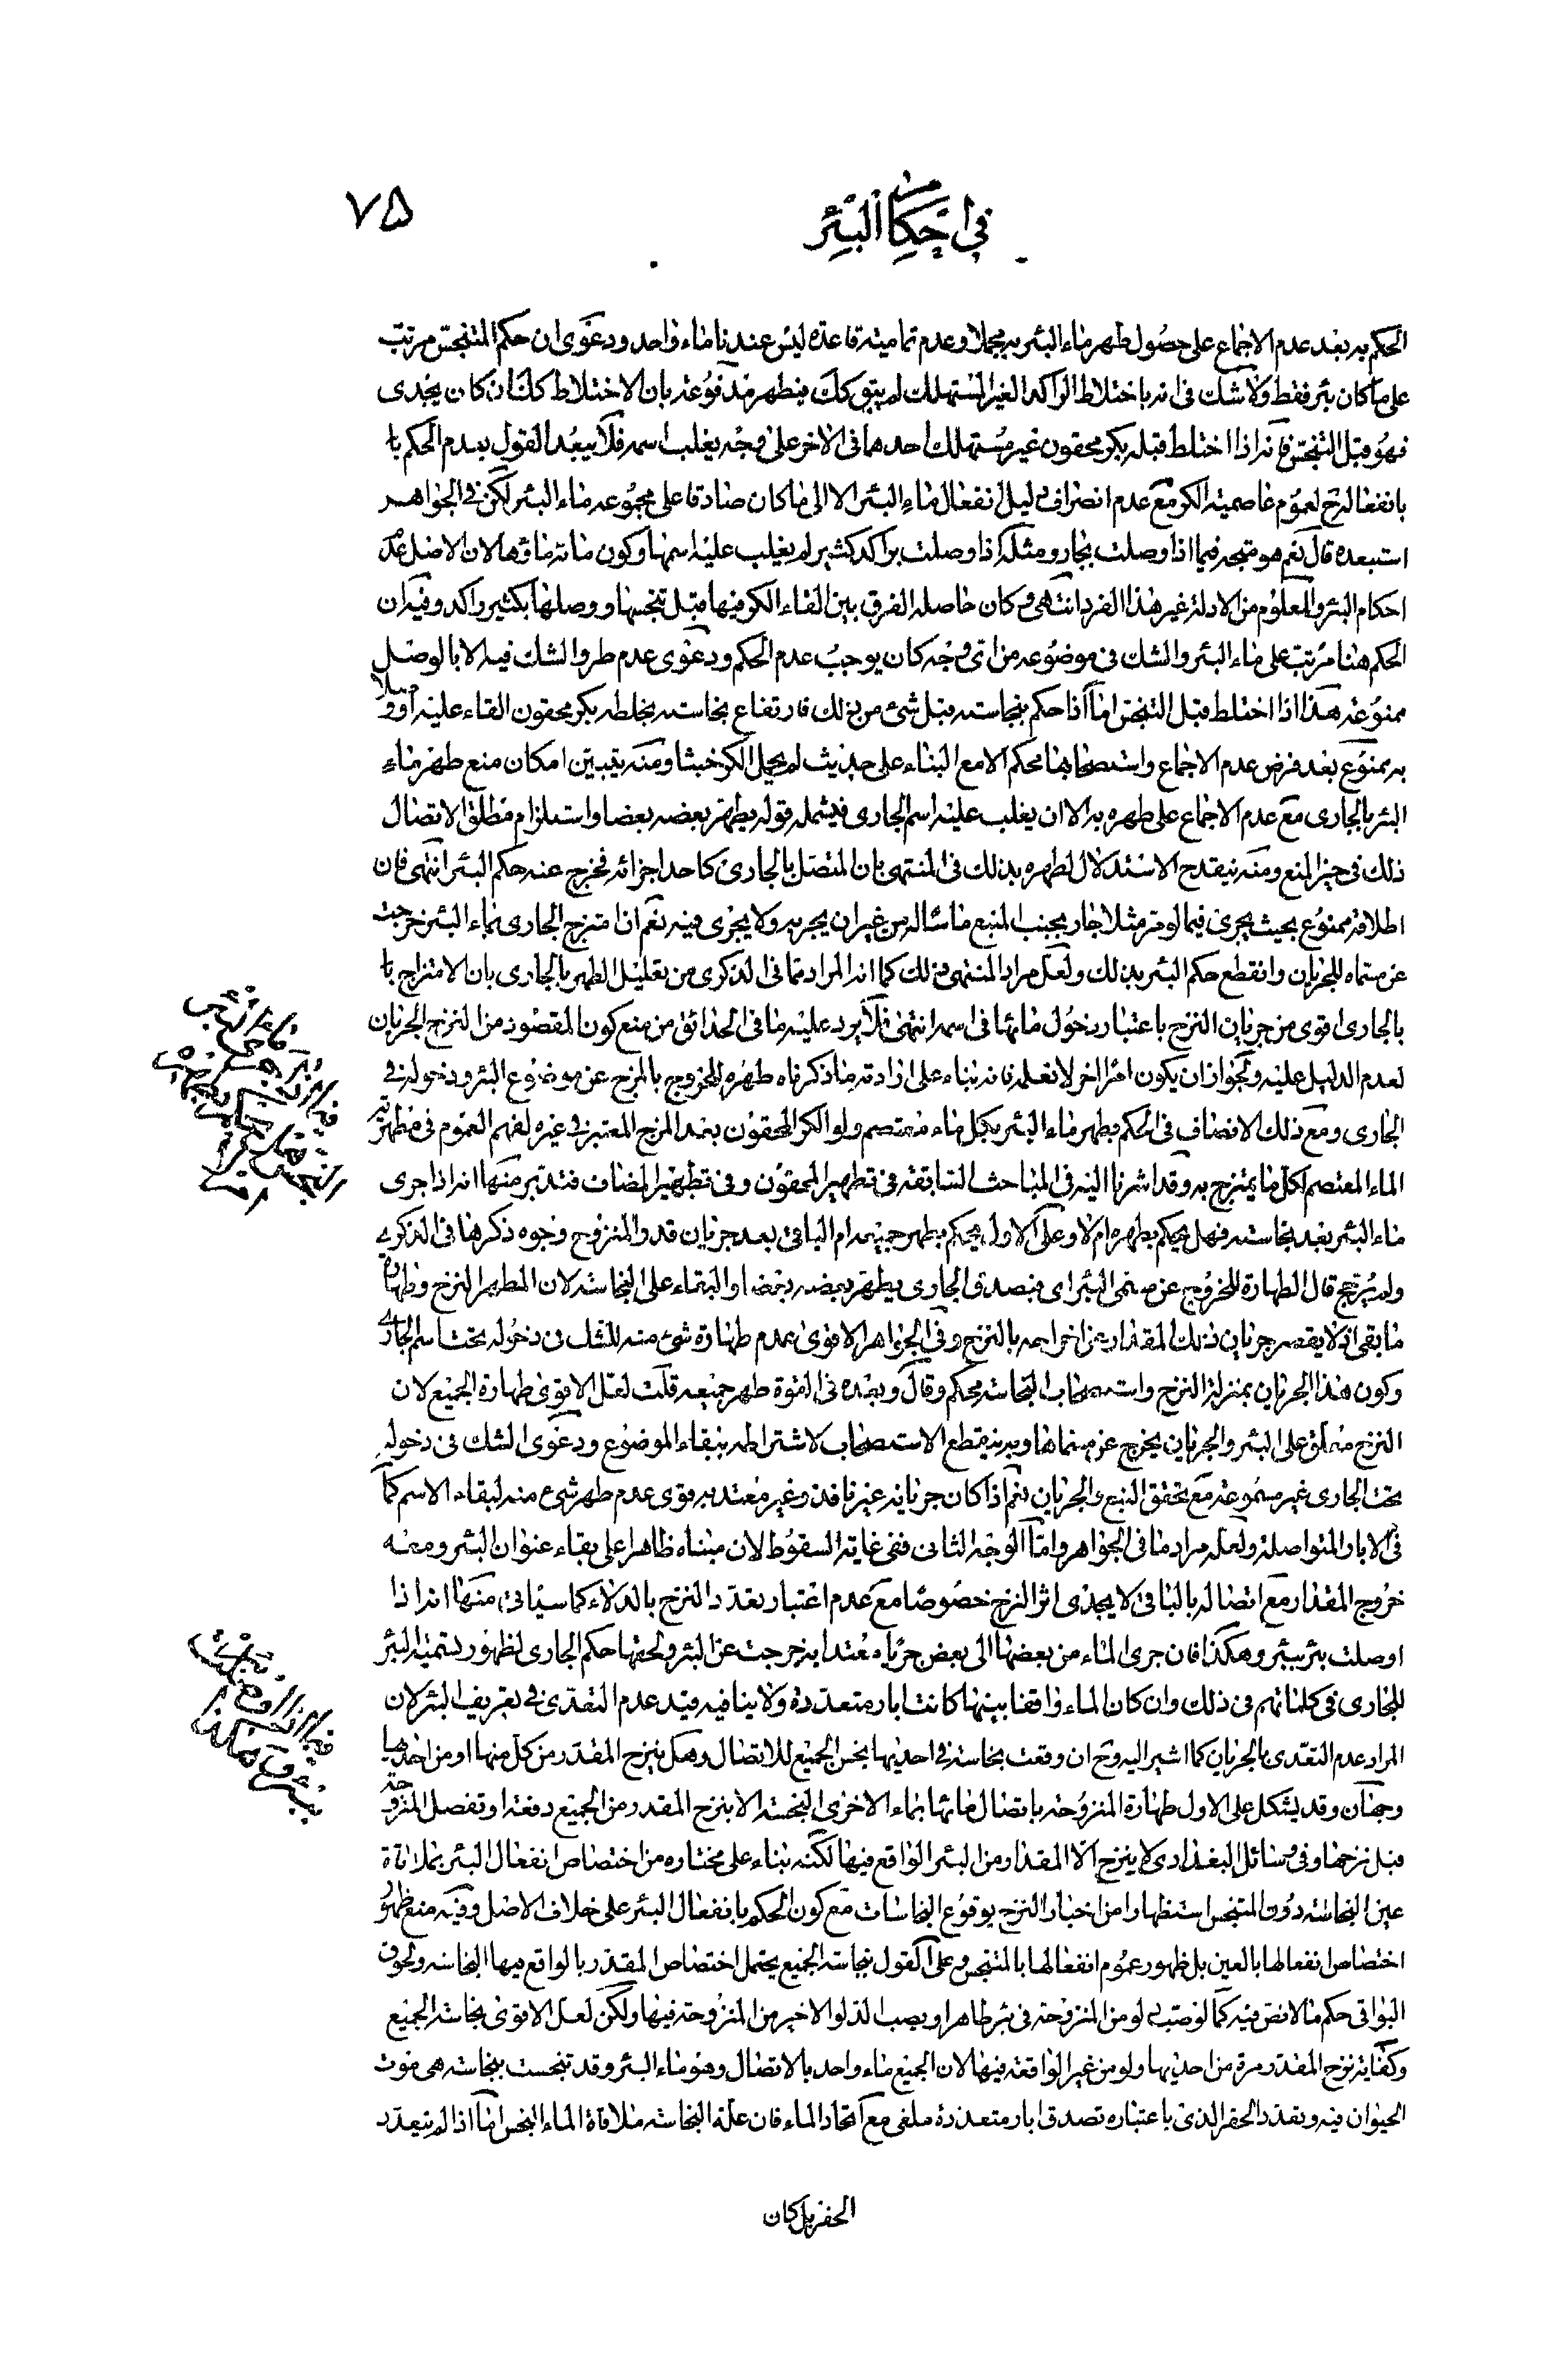 في احكام البئر
٧٥
الحكم به بعد عدم الاجماع على حصول طهر ماء البئر به مجملا وعدم تمامية قاعدة ليس عندنا ماء واحد ودعوى ان حكم المتنجس مرتب
على ما كان بئر فقط ولا شك في انه باختلاط الراكد الغير المستهلك لم يبق كك فيطهر مدفوعة بان الاختلاط كك ان كان يجدى
فهو قبل التنجس فانه اذا اختلط قبله بكر محقون غير مستهلك احدهما في الاخر على وجه يغلب اسمه فلا يبعد القول بعدم الحكم با
بانفعاله ح لعموم عاصمية الكر مع عدم انصراف دليل انفعال ماء البئر الا الى ما كان صادقا على مجموعه ماء البئر لكن في الجواهر
استبعده قال نعم هو متجه فيما اذا وصلت بجار ومثله اذا وصلت براكد كثير لم يغلب عليه اسمها وكون مائه ماؤها لان الاصل عدم
احكام البئر والمعلوم من الادلة غير هذا الفرد انتهى وكان حاصله الفرق بين القاء الكر فيها قبل تنجسها ووصلها بكثير راكد وفيه ان
الحكم هنا مرتب على ماء البئر والشك في موضوعه من اى وجه كان يوجب عدم الحكم ودعوى عدم طرو الشك فيه الا بالوصل
ممنوعة هذا اذا اختلط قبل التنجس اما اذا حكم بنجاسته قبل شئ من ذلك فارتفاع نجاسته بخلطه بكر محقون القاء عليه او وصلا
به ممنوع بعد فرض عدم الاجماع واستصحابها محكم الا مع البناء على حديث لم يحمل الكر خبثا ومنه يتبين امكان منع طهر ماء
البئر بالجارى مع عدم الاجماع على طهره به الا ان يغلب عليه اسم الجارى فيشمله قوله يطهر بعضه بعضا واستلزام مطلق الاتصال
ذلك في حيز المنع ومنه ينقدح الاستدلال لطهره بذلك في المنتهى بان المتصل بالجارى كاحد اجزائه فخرج عنه حكم البئر انتهى فان
اطلاقه ممنوع بحيث يجرى فيما لو مر مثلا جار بجنب المنبع ماسا له من غير ان يجر به ولا يجرى فيه نعم ان امتزج الجارى بماء البئر خرجت
عن مسماه للجريان وانقطع حكم البئر بذلك ولعل مراد المنتهى ذلك كما انه المراد مما في الذكرى من تعليل الطهر بالجارى بان الامتزاج با
بالجارى اقوى من جريان النزح باعتبار دخول مائها في اسمه انتهى فلا يرد عليه ما في الحدائق من منع كون المقصود من النزح الجريان
لعدم الدليل عليه وتجواز ان يكون امرا اخر لا نعلمه فانه بناء على ارادته ما ذكرناه طهره للخروج بالمزج عن موضوع البئر ودخوله في
الجارى ومع ذلك الانصاف في الحكم بطهر ماء البئر بكل ماء معتصم ولو الكر المحقون بعد المزج المعتبر في غيره لفهم العموم في مطهرية
الماء المعتصم لكل ما يمتزج به وقد اشرنا اليه في المباحث السابقة في تطهير المحقون وفي تطهير المضاف فتدبر منها انه اذا جرى
ماء البئر بعد نجاسته فهل يحكم بطهره ام لا وعلى الاول يحكم بطهر جميعه ام الباقى بعد جريان قدر المنزوح وجوه ذكرها في الذكرى
ولم يرجح قال الطهارة للخروج عن مسمى البئر اى فبصدق الجارى يطهر بعضه بعضا والبقاء على النجاسة لان المطهر النزح وطهارة
ما بقى اذ لا يقصر جريان ذلك المقدار عن اخراجه بالنزح وفي الجواهر الاقوى عدم طهارة شئ منه للشك في دخوله تحت اسم الجارى
وكون هذا الجريان بمنزلة النزح واستصحاب النجاسة محكم وقال وبعده في القوة طهر جميعه قلت لعل الاقوى طهارة الجميع لان
النزح معلق على البئر والجريان يخرج عن مسماها وبه ينقطع الاستصحاب لاشتراطه ببقاء الموضوع ودعوى الشك في دخوله
تحت الجارى غير مسموعة مع تحقق النبع والجريان نعم اذا كان جريانه غير نافذ وغير معتد به قوى عدم طهر شئ منه لبقاء الاسم كما
في الابار المتواصلة ولعله مراد ما في الجواهر واما الوجه الثانى ففي غاية السقوط لان مبناه ظاهرا على بقاء عنوان البئر ومعه
خروج المقدار مع اتصاله بالباقى لا يجدى اثر النزح خصوصا مع عدم اعتبار تعدد النزح بالدلاء كما سياتى منها انه اذا
اوصلت بئر ببئر وهكذا فان جرى الماء من بعضها الى بعض جريا معتدا به خرجت عن البئر ولحقها حكم الجارى لظهور تسمية البئر
للجارى في كلماتهم في ذلك وان كان الماء واقفا بينها كانت ابار متعددة ولا ينافيه قيد عدم التعدى في تعريف البئر لان
المراد عدم التعدى بالجريان كما اشير اليه وح ان وقعت نجاسة في احديها نجس الجميع للاتصال وهل ينزح المقدر من كل منها او من احديها
وجهان وقد يشكل على الاول طهارة المنزوحة باتصال مائها بماء الاخرى النجسة الا بنزح المقدر من الجميع دفعة او تفصل المنزوحة
قبل نزحها وفي وسائل البغدادى لا ينزح الا المقدار من البئر الواقع فيها لكنه بناء على مختاره من اختصاص انفعال البئر بملاقاة
عين النجاسة دون المتنجس استظهارا من اخبار النزح بوقوع النجاسات مع كون الحكم بانفعال البئر على خلاف الاصل وفيه منع ظهور
اختصاص انفعالها بالعين بل ظهور عموم انفعالها بالمتنجس وعلى القول بنجاسة الجميع يحتمل اختصاص المقدر بالواقع فيها النجاسة ولحوق
البواقى حكم ما لا نص فيه كما لو صب دلو من المنزوحة في بئر طاهر او يصب الدلو الاخير من المنزوحة فيها ولكن لعل الاقوى نجاسة الجميع
وكفاية نزح المقدر مرة من احديها ولو من غير الواقعة فيها لان الجميع ماء واحد بالاتصال وهو ماء البئر وقد تنجست بنجاسة هى موت
الحيوان فيه وتعدد الحفر الذى باعتباره تصدق ابار متعددة ملغى مع اتحاد الماء فان علة النجاسة ملاقاة الماء النجس اما اذا لم يتعدد
الحفر بل كان